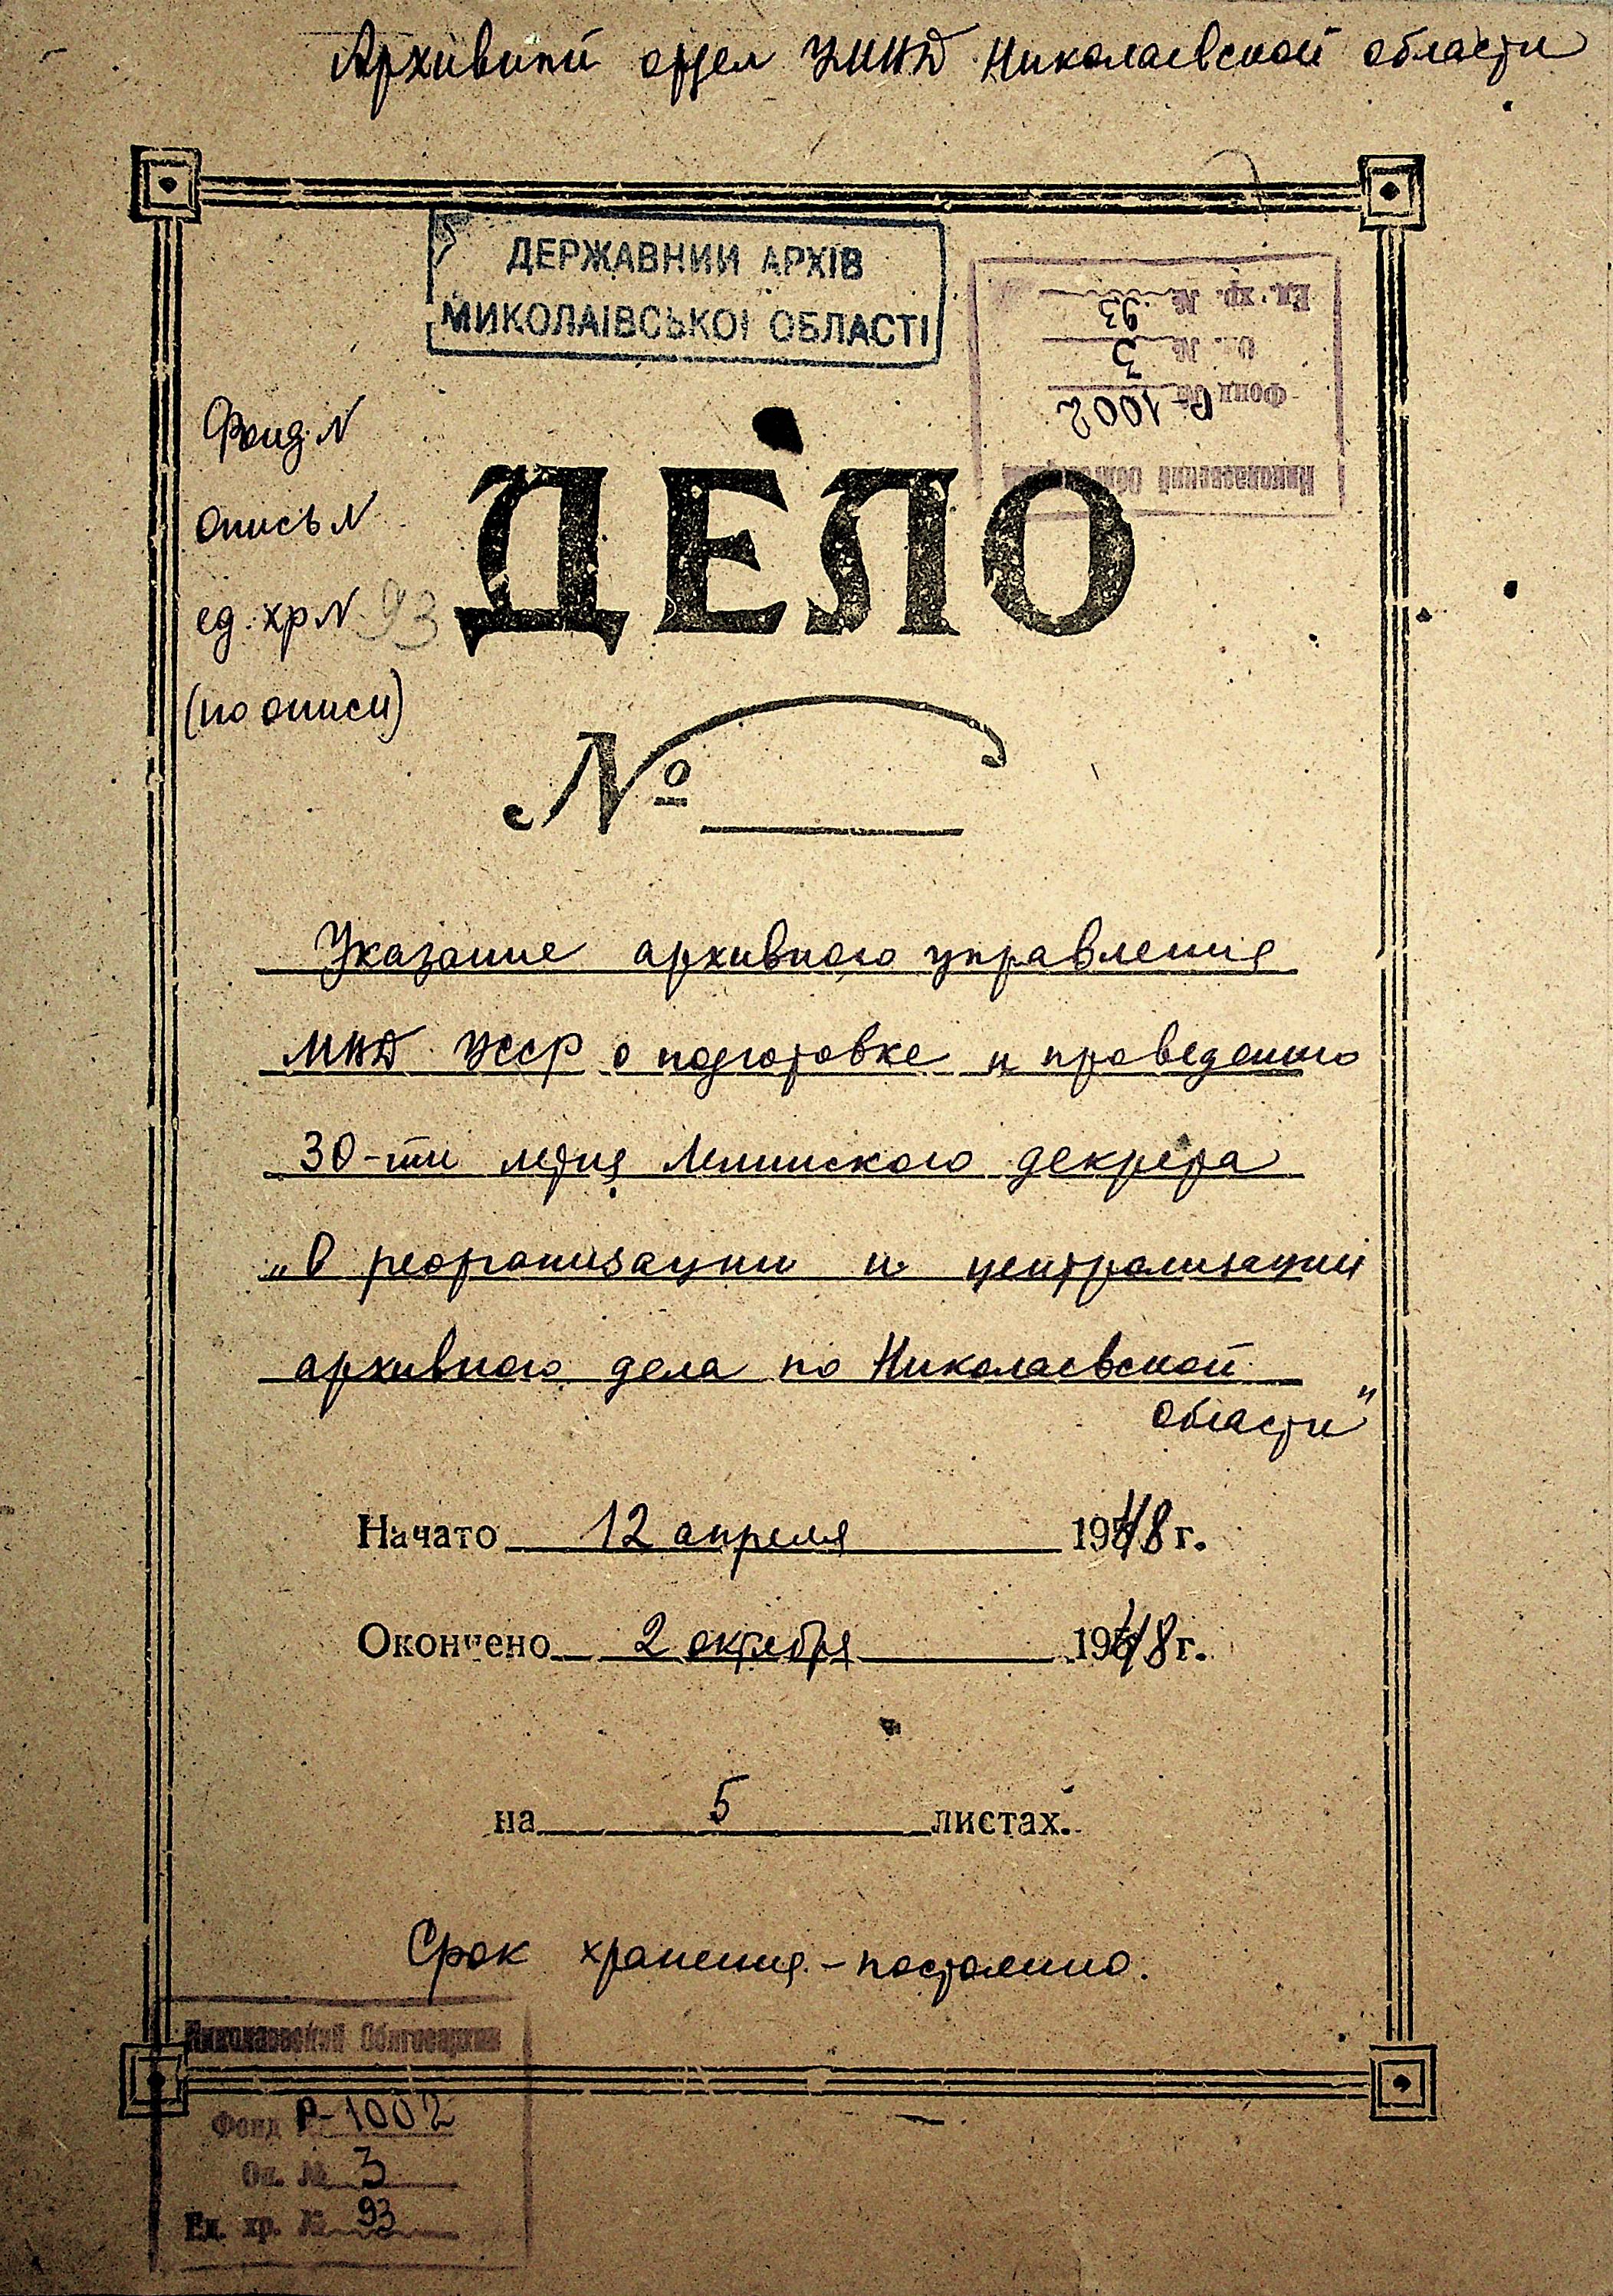 Архивный отдел УМВД Николаевской области
ДЕРЖАВНИЙ АРХІВ
МИКОЛАЇВСЬКОЇ ОБЛАСТІ
Николаевский Облгосархив
Фонд № Р-1002
Оп. № 3
Ед. хр. № 93
Фонд N
Опись N
ед. хр N 93
(по описи)
ДЕЛО
№
Указание архивного управления
МВД УССР о подготовке и проведению
30-ти летия Ленинского декрета
„О реорганизации и централизации
архивного дела по Николаевской
области"
Начато 12 апреля 1948 г.
Окончено 2 октября 1948 г.
на 5 листах.
Срок хранения - постоянно.
Николаевский Облгосархив
Фонд Р-1002
Оп. № 3
Ед. хр. № 93